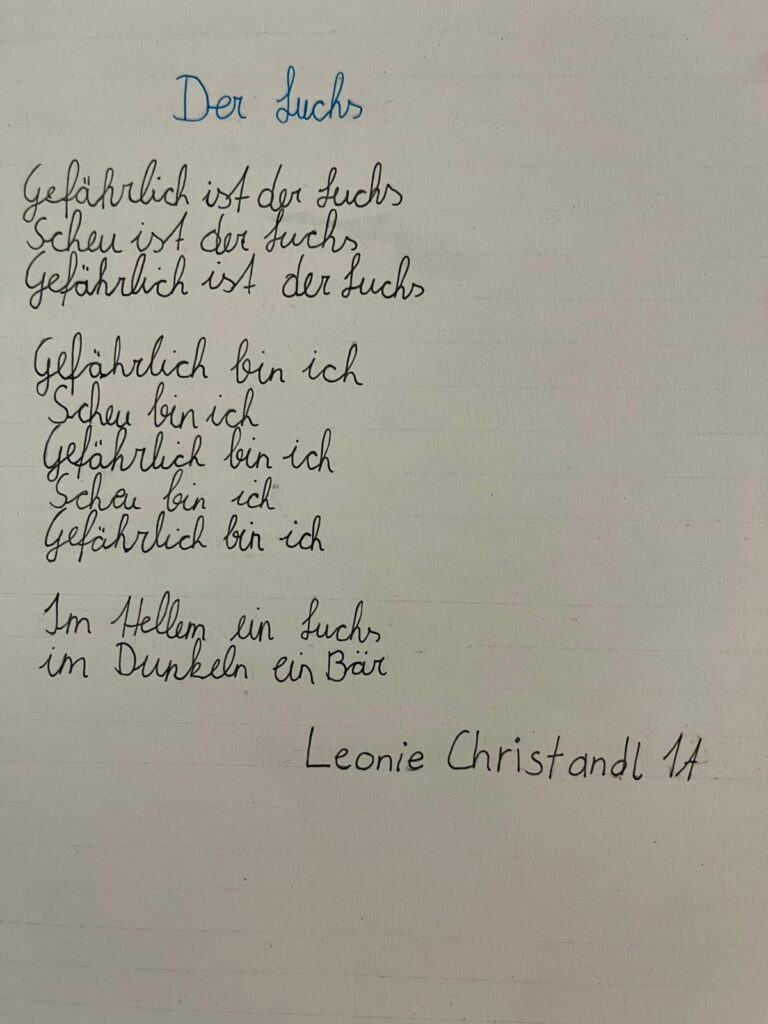 Der Luchs
Gefährlich ist der Luchs
Scheu ist der Luchs
Gefährlich ist der Luchs
Gefährlich bin ich
Scheu bin ich
Gefährlich bin ich
Scheu bin ich
Gefährlich bin ich
Im Hellem ein Luchs
im Dunkeln ein Bär
Leonie Christandl 1A